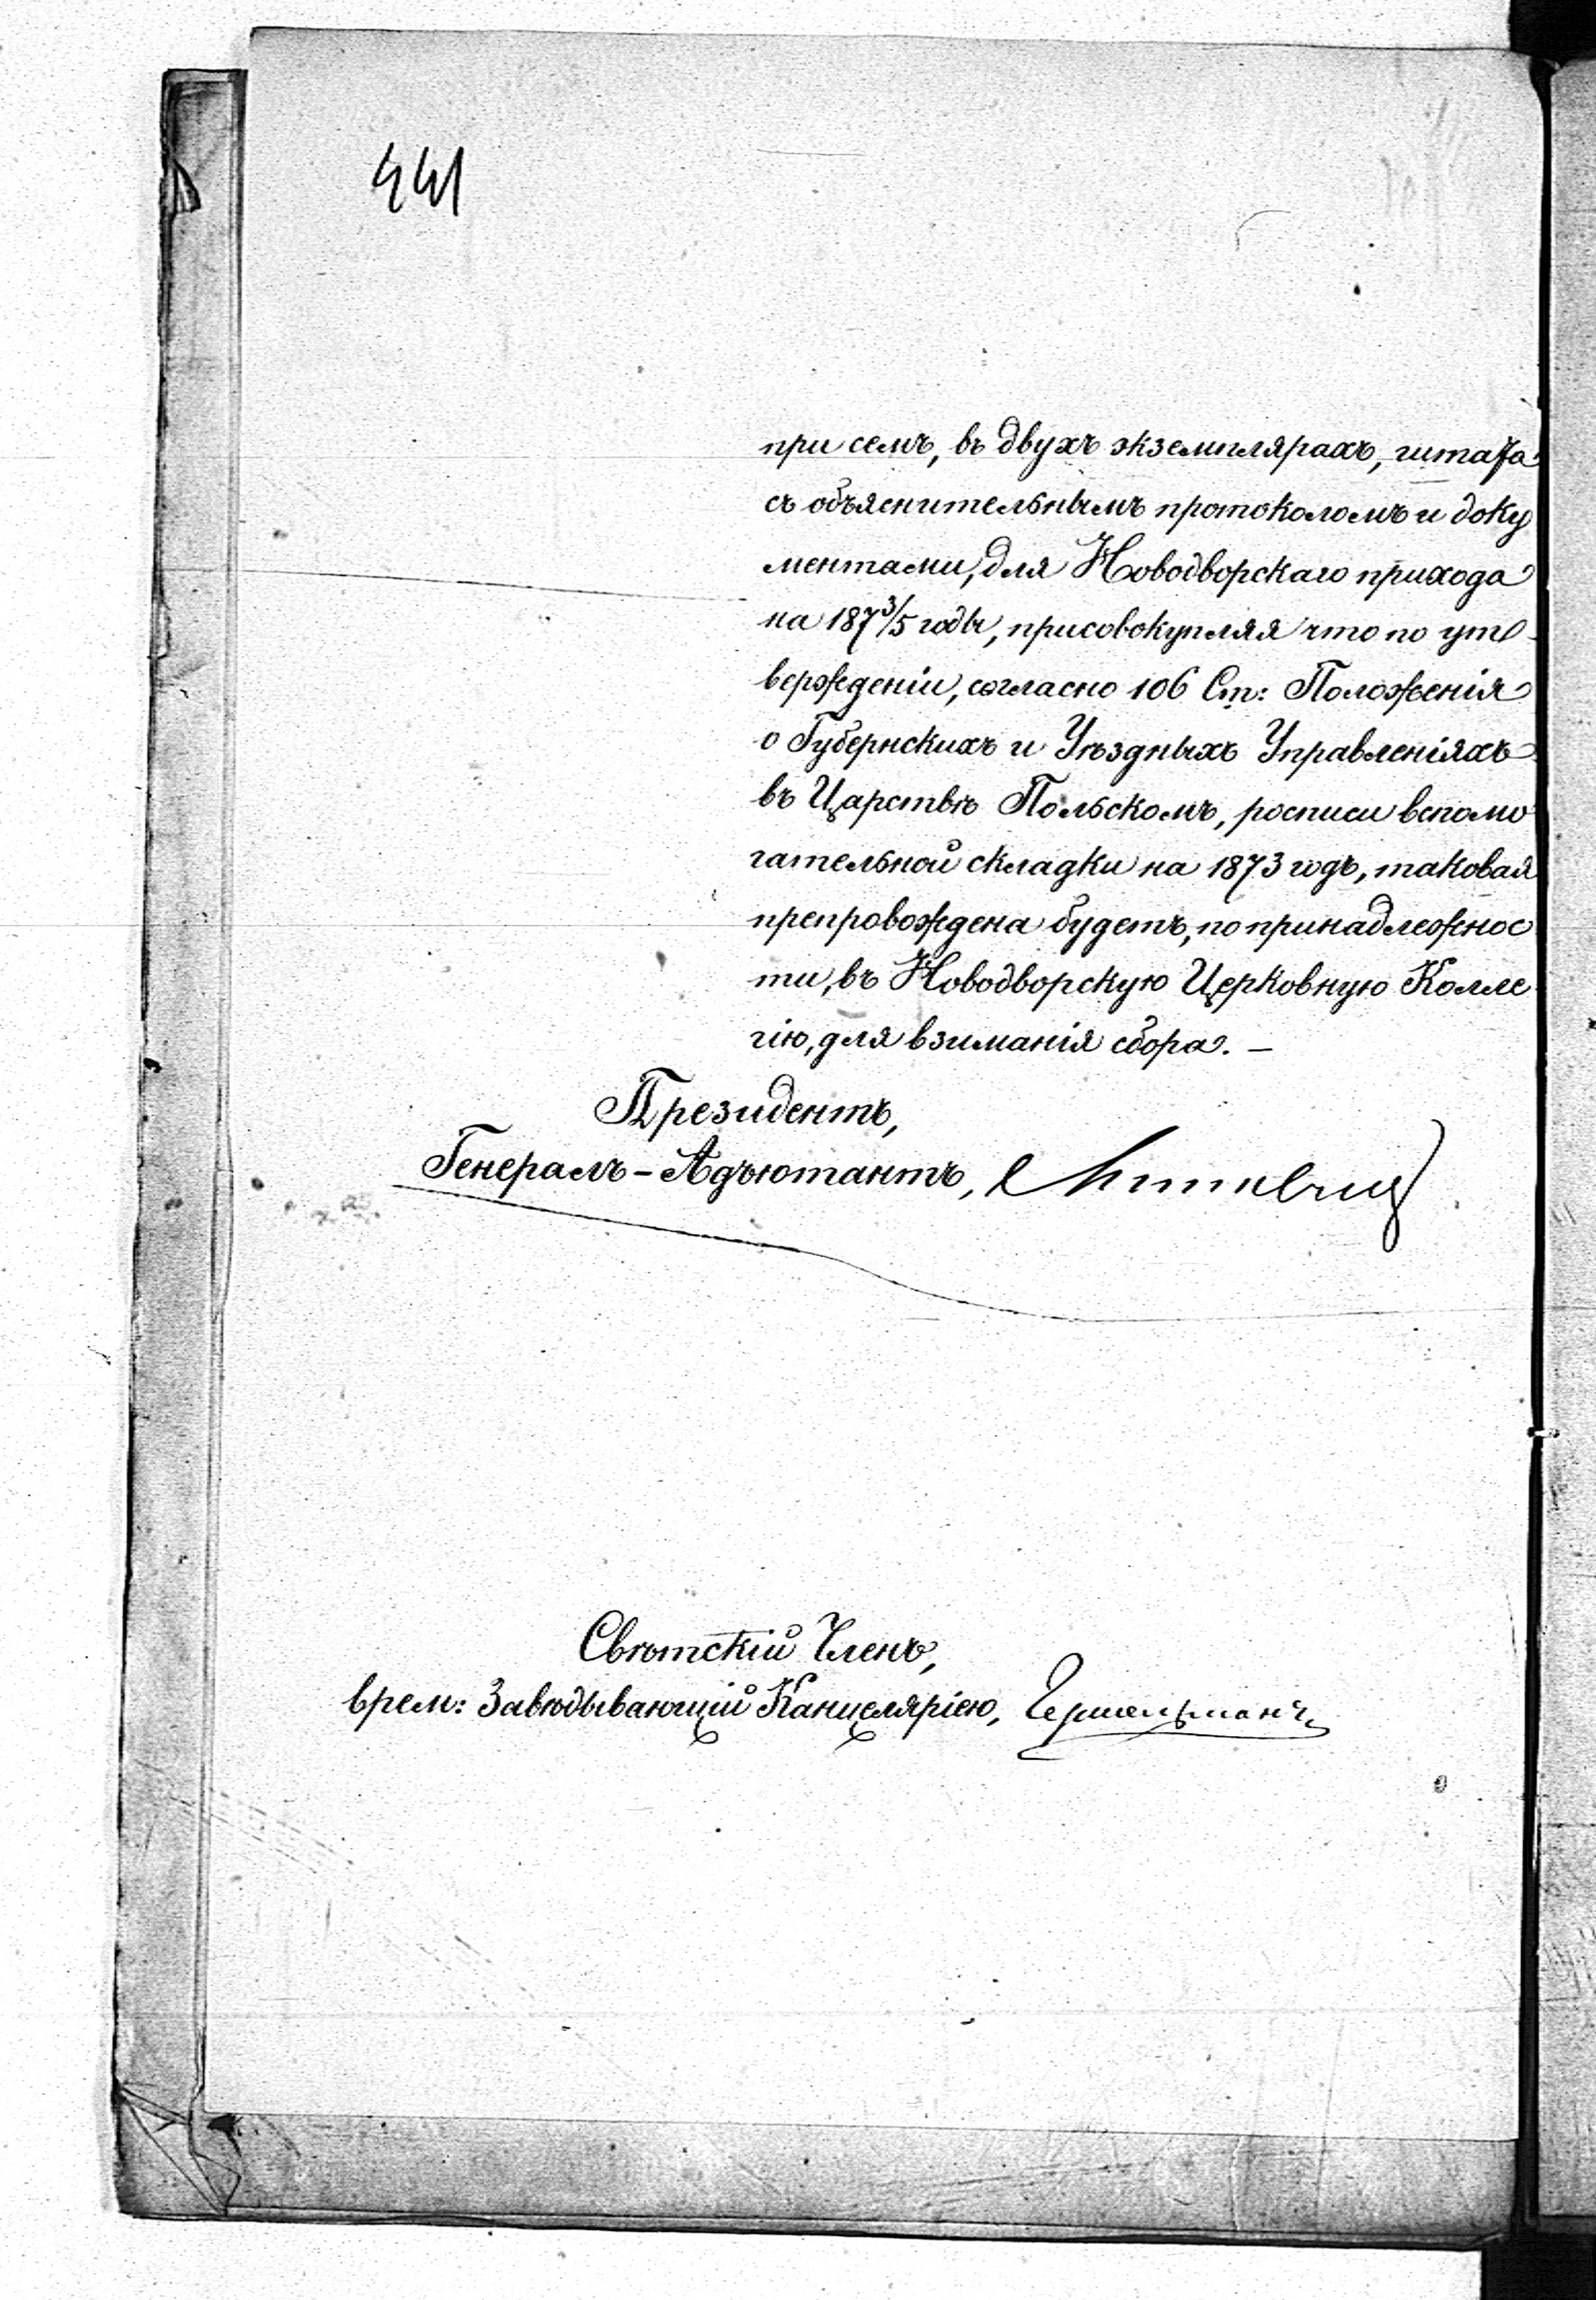 441
при семъ, въ двухъ экземплярахъ, штата
съ объяснительнымъ протоколомъ и доку
ментами, для Новодворскаго прихода
на 187 3/5 годы, присовокупляя что по ут-
вержденіи, согласно 106 Ст: Положенія
о Губернскихъ и Уѣздныхъ Управленіяхъ
въ Царствѣ Польскомъ, росписи вспомо
гательной складки на 1873 годъ, таковая
препровождена будетъ, по принадлежнос
ти, въ Новодворскую Церковную Колле
гію, для взиманія сбора. —
Президентъ,
Генералъ-Адъютантъ,
Свѣтскій Членъ,
врем: Завѣдывающій Канцеляріею,